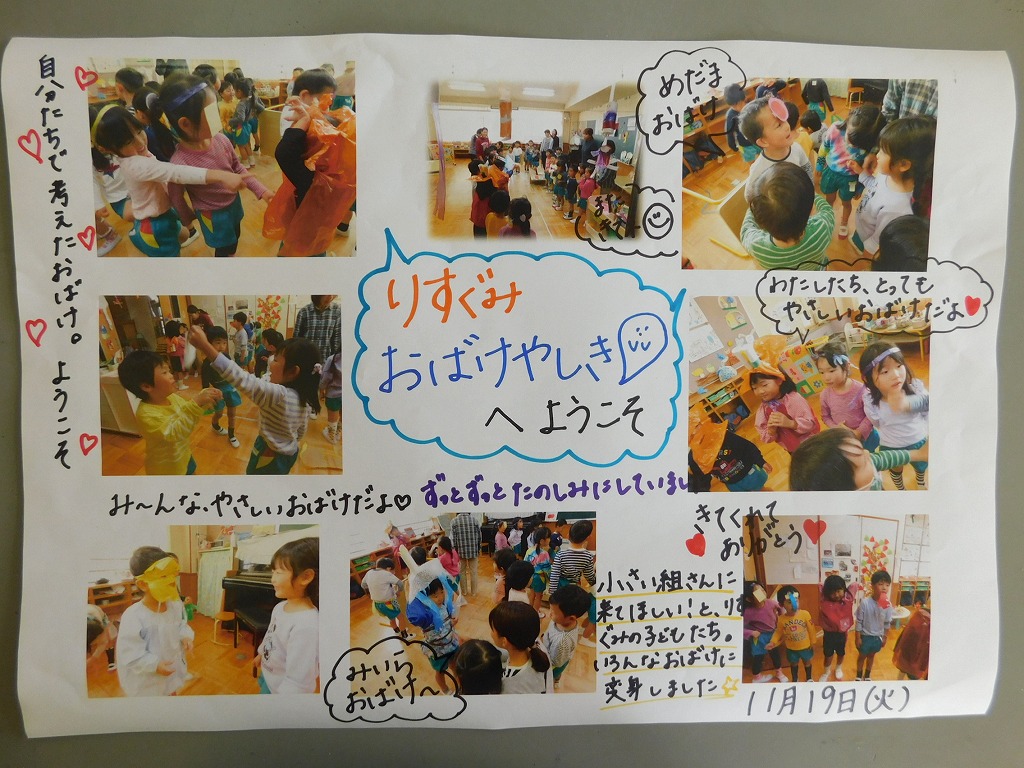 自分たちで考えたおばけ。ようこそ
めだま
おばけ
また
りすぐみ
おばけやしき
へようこそ
わたしたち、とっても
やさしいおばけだよ
み〜んな、やさしいおばけだよ♡
ずっとずっとたのしみにしていまし
きてくれて
ありがとう
小さい組さんに
来てほしい!と、りす
ぐみの子どもたち。
いろんなおばけに
変身しました☆
みいら
おばけ〜
11月19日(火)